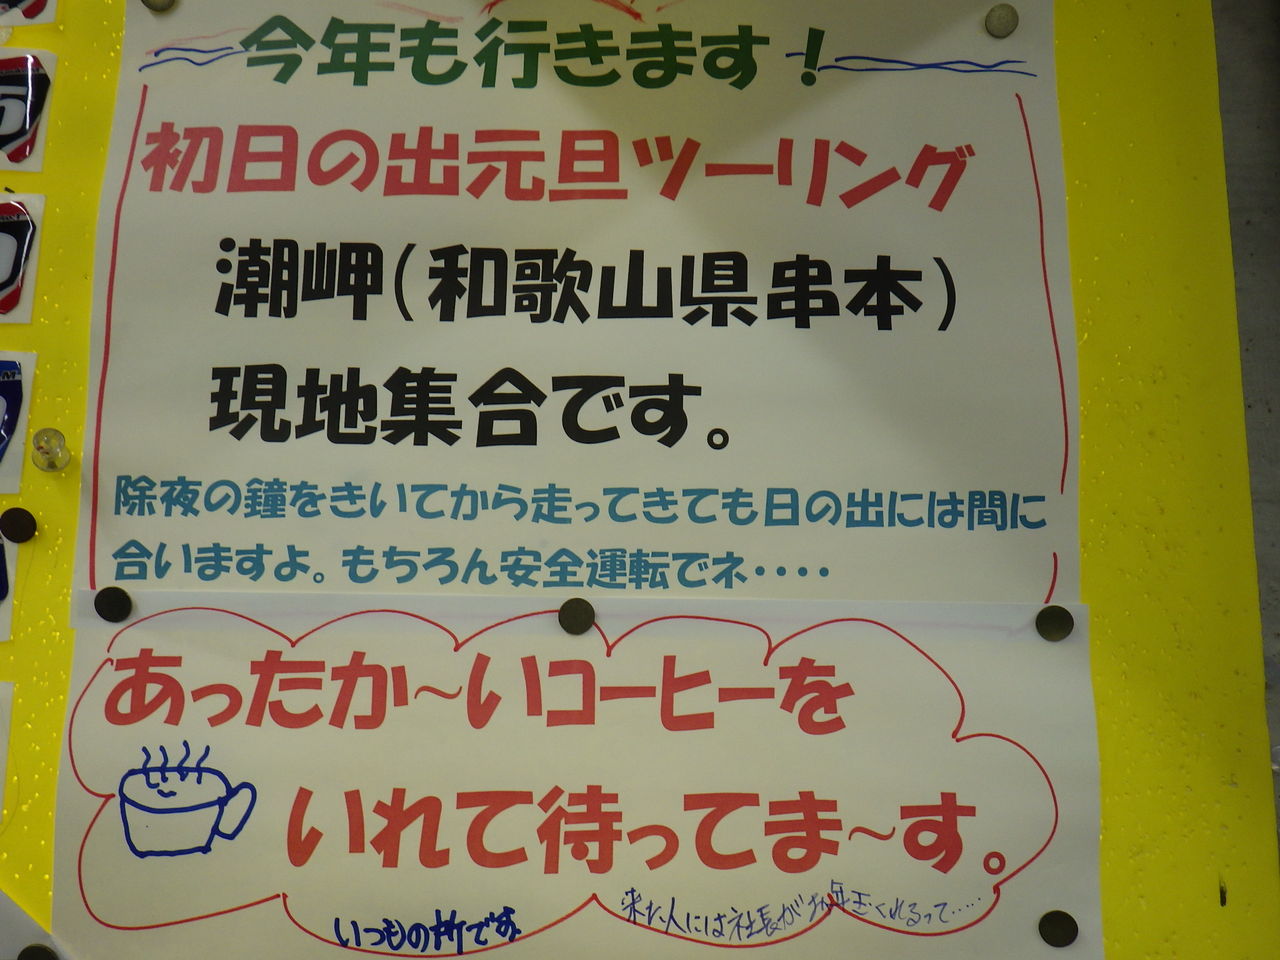 今年も行きます！
初日の出元旦ツーリング
潮岬(和歌山県串本)
現地集合です。
除夜の鐘をきいてから走ってきても日の出には間に
合いますよ。もちろん安全運転でネ・・・・
あったか～いコーヒーを
いれて待ってま～す。
いつもの所です
来た人には社長がお年玉くれるって……